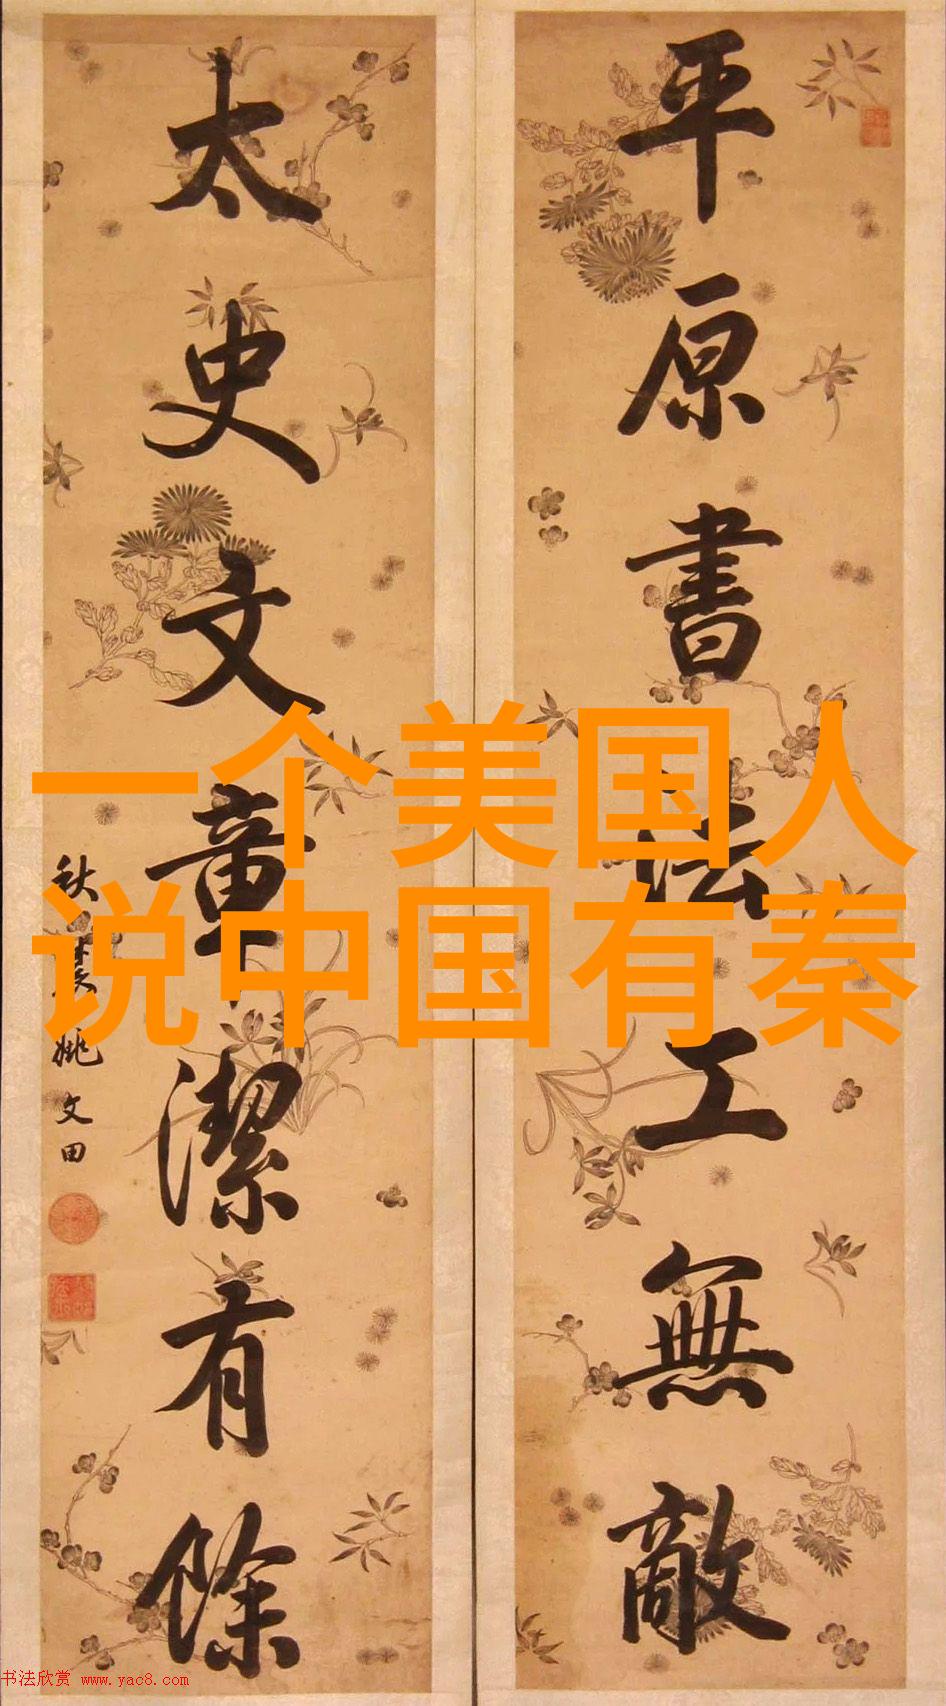 平原書法工無敵
太史文章潔有餘
秋農姚文田
一个美国人
说中国有秦
书法欣赏 www.yac8.com